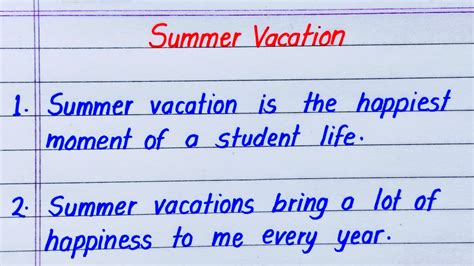 Summer Vacation
1. Summer vacation is the happiest
moment of a student life.
2. Summer vacations bring a lot of
happiness to me every year.